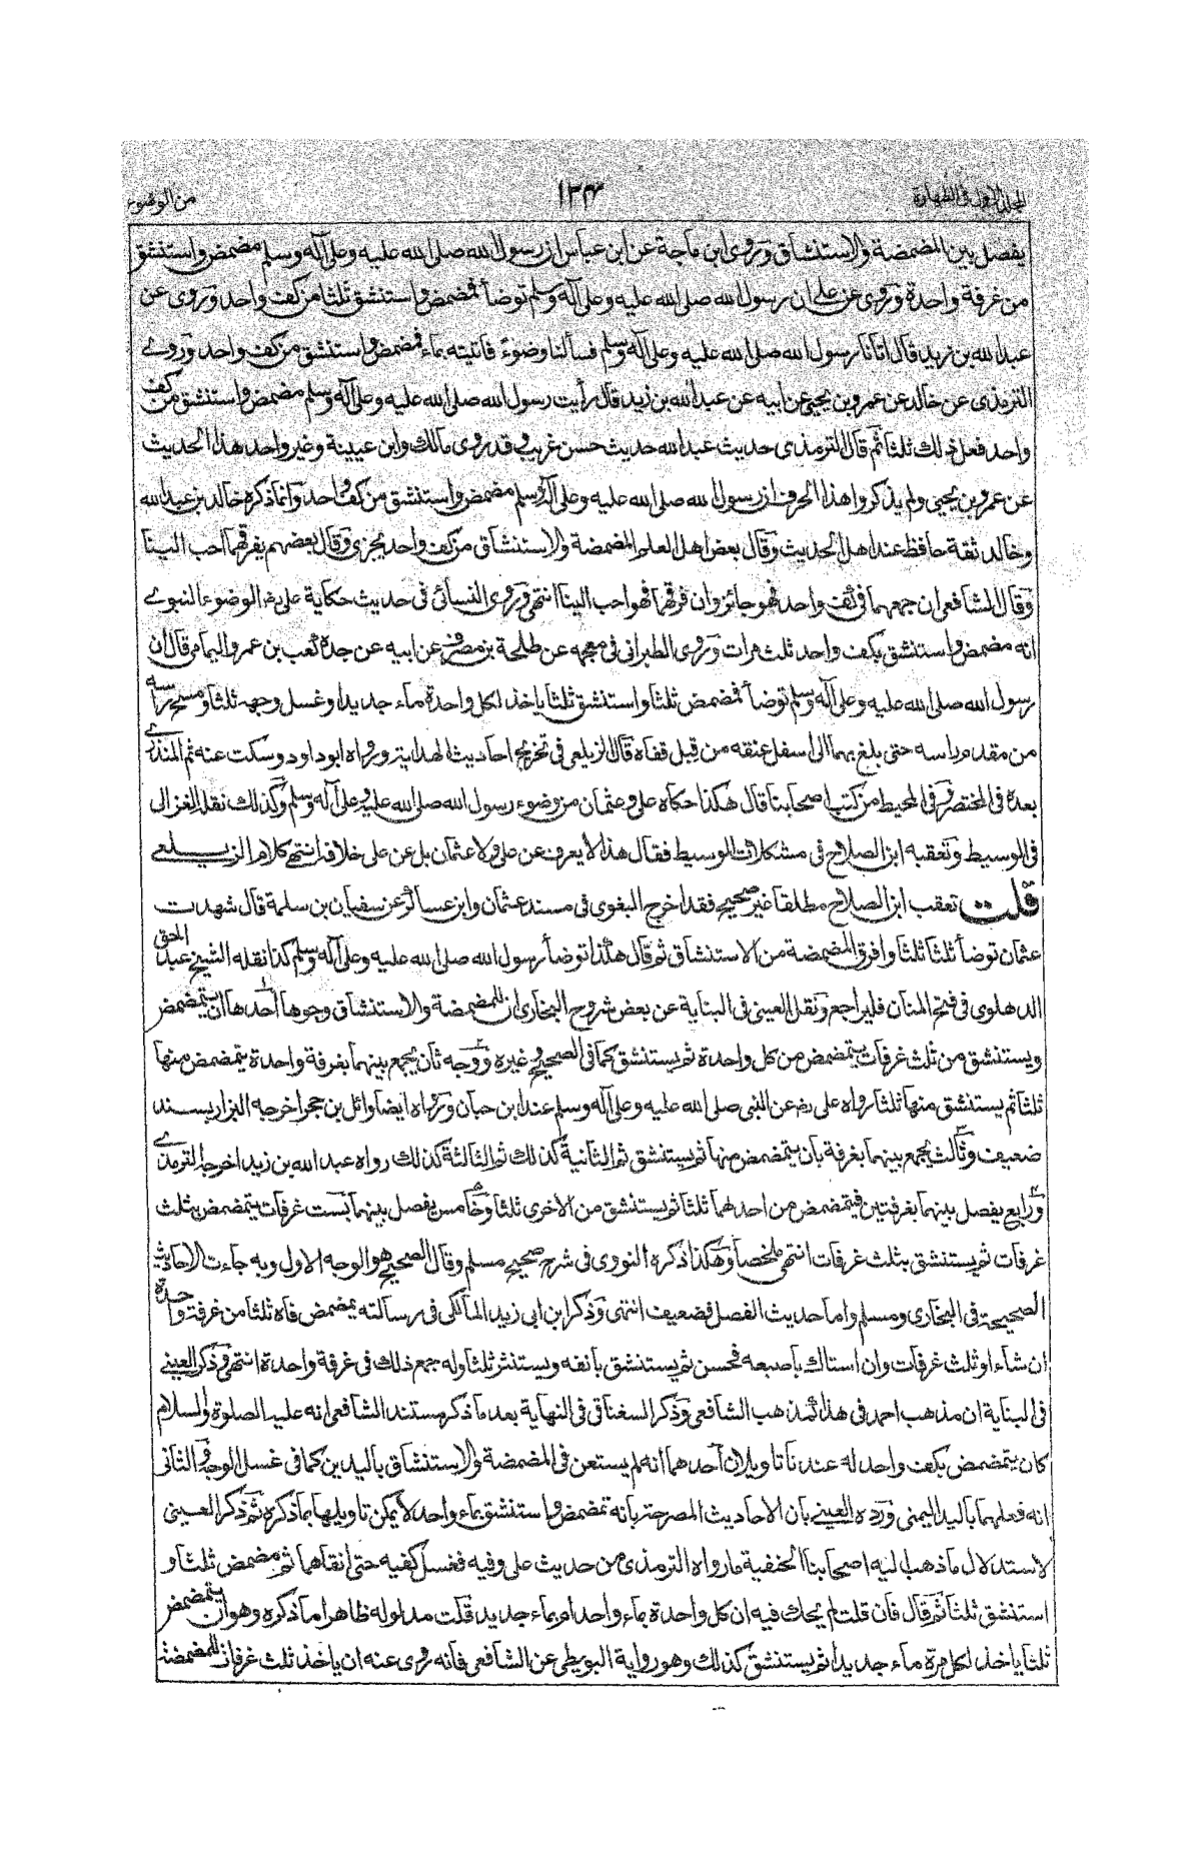 المجلد الاول فى الطهارة ١٣٤ من الوضوء
يفصل بين المضمضة والاستنشاق وروى ابن ماجة عن ابن عباس ان رسول الله صلى الله عليه وعلى آله وسلم مضمض واستنشق
من غرفة واحدة وروى عن على ان رسول الله صلى الله عليه وعلى آله وسلم توضأ فمضمض واستنشق ثلثا من كف واحد وروى عن
عبد الله بن زيد قال اتانا رسول الله صلى الله عليه وعلى آله وسلم فسألنا وضوءً فاتيته بماء فمضمض واستنشق من كف واحد وروے
الترمذى عن خالد عن عمرو بن يحيى عن ابيه عن عبد الله بن زيد قال رأيت رسول الله صلى الله عليه وعلى آله وسلم مضمض واستنشق من كف
واحد فعل ذلك ثلثا ثم قال الترمذى حديث عبد الله حديث حسن غريب وقد روى مالك وابن عيينة وغير واحد هذا الحديث
عن عمرو بن يحيى ولم يذكروا هذا الحرف ان رسول الله صلى الله عليه وعلى آله وسلم مضمض واستنشق من كف واحد وانما ذكره خالد بن عبد الله
وخالد ثقة حافظ عند اهل الحديث وقال بعض اهل العلم المضمضة والاستنشاق من كف واحد يجزى وقال بعضهم يفرقهما احب الينا
وقال الشافعى ان جمعهما فى كف واحد فهو جائز وان فرقهما فهو احب الينا انتهى وروى النسائى فى حديث حكاية على رضه الوضوء النبوے
انه مضمض واستنشق بكف واحد ثلث مرات وروى الطبرانى فى معجمه عن طلحة بن مصرف عن ابيه عن جده كعب بن عمرو اليمامى قال ان
رسول الله صلى الله عليه وعلى آله وسلم توضأ فمضمض ثلثا واستنشق ثلثا ياخذ لكل واحدة ماء جديدا وغسل وجهه ثلثا ومسح راسه
من مقدم راسه حتى بلغ بهما الى اسفل عنقه من قبل قفاه قال الزيلعى فى تخريج احاديث الهداية ورواه ابو داود وسكت عنه ثم المنذرے
بعده فى المختصر وفى المحيط من كتب اصحابنا قال هكذا حكاه على وعثمان من وضوء رسول الله صلى الله عليه وعلى آله وسلم وكذلك نقله الغزالى
فى الوسيط وتعقبه ابن الصلاح فى مشكلات الوسيط فقال هذا لا يعرف عن على ولا عثمان بل عن على خلافه انتهى كلام الزيلعے
قلت تعقب ابن الصلاح مطلقا غير صحيح فقد اخرج البغوى فى مسند عثمان وابن عساكر عن سفيان بن سلمة قال شهدت
عثمان توضأ ثلثا ثلثا وافرق المضمضة من الاستنشاق ثم قال هكذا توضأ رسول الله صلى الله عليه وعلى آله وسلم كذا نقله الشيخ عبد الحق
الدهلوى فى فتح المنان فليراجع ونقل العينى فى البناية عن بعض شروح البخارى ان للمضمضة والاستنشاق وجوها احدها ان يتمضمض
ويستنشق من ثلث غرفات يتمضمض من كل واحدة ثم يستنشق كما فى الصحيح وغيره ووجه ثان يجمع بينهما بغرفة واحدة يتمضمض منها
ثلثا ثم يستنشق منها ثلثا رواه على رضه عن النبى صلى الله عليه وعلى آله وسلم عند ابن حبان ورواه ايضا وائل بن حجر اخرجه البزار بسند
ضعيف وثالث يجمع بينهما بغرفة بان يتمضمض منها ثم يستنشق ثم الثانية كذلك ثم الثالثة كذلك رواه عبد الله بن زيد اخرجه الترمذے
ورابع يفصل بينهما بغرفتين فيتمضمض من احدهما ثلثا ثم يستنشق من الاخرى ثلثا وخامس يفصل بينهما بست غرفات يتمضمض بثلث
غرفات ثم يستنشق بثلث غرفات انتهى ملخصا وهكذا ذكره النووى فى شرح صحيح مسلم وقال الصحيح هو الوجه الاول وبه جاءت الاحاديث
الصحيحة فى البخارى ومسلم واما حديث الفصل فضعيف انتهى وذكر ابن ابى زيد المالكى فى رسالته يمضمض فاه ثلثا من غرفة واحدة
ان شاء او ثلث غرفات وان استاك باصبعه فحسن ثم يستنشق بانفه ويستنثر ثلثا وله جمع ذلك فى غرفة واحدة انتهى وذكر العينے
فى البناية ان مذهب احمد فى هذا كمذهب الشافعى وذكر السغناقى فى النهاية بعد ما ذكر مستند الشافعى انه عليه الصلوة والسلام
كان يتمضمض بكف واحد له عندنا تاويلان احدهما انه لم يستعن فى المضمضة والاستنشاق باليدين كما فى غسل الوجه والثانى
انه فعلهما باليد اليمنى ورده العينے بان الاحاديث المصرحة بانه تمضمض واستنشق بماء واحد لا يمكن تاويلها بما ذكره ثم ذكر العينى
لاستدلال ما ذهب اليه اصحابنا الحنفية ما رواه الترمذى من حديث على وفيه فغسل كفيه حتى انقاهما ثم مضمض ثلثا و
استنشق ثلثا ثم قال فان قلت لم يحك فيه ان كل واحدة بماء واحد ام بماء جديد قلت مدلوله ظاهرا ما ذكره وهو ان يتمضمض
ثلثا ياخذ لكل مرة ماء جديدا ثم يستنشق كذلك وهو رواية البويطى عن الشافعى فانه روى عنه ان ياخذ ثلث غرفات للمضمضة